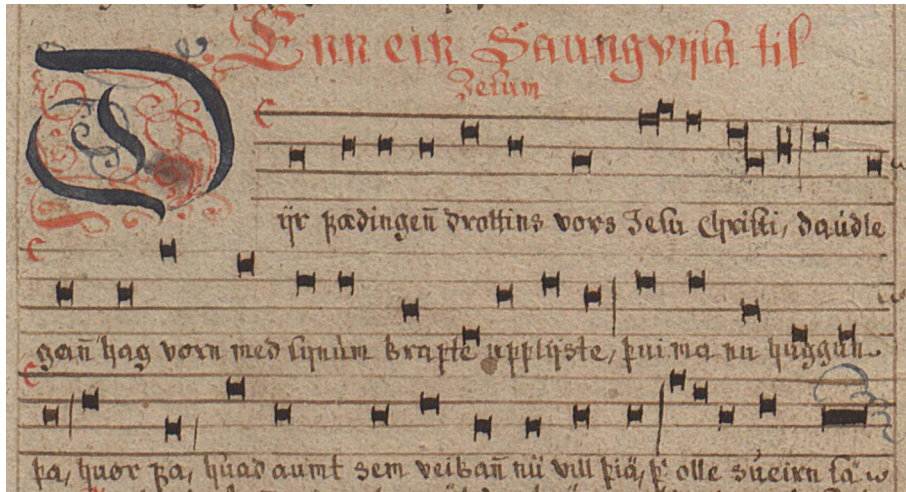 Enn ein Saungvijsa til
Jesum
Dijr fædingeñ drottins vors Jesu Christi, daúdle
gañ hag vorn med sijnúm krapte upplijste, þui ma nu huggun
fa, huor ka, húad aumt sem veikañ nú vill þiä, olle